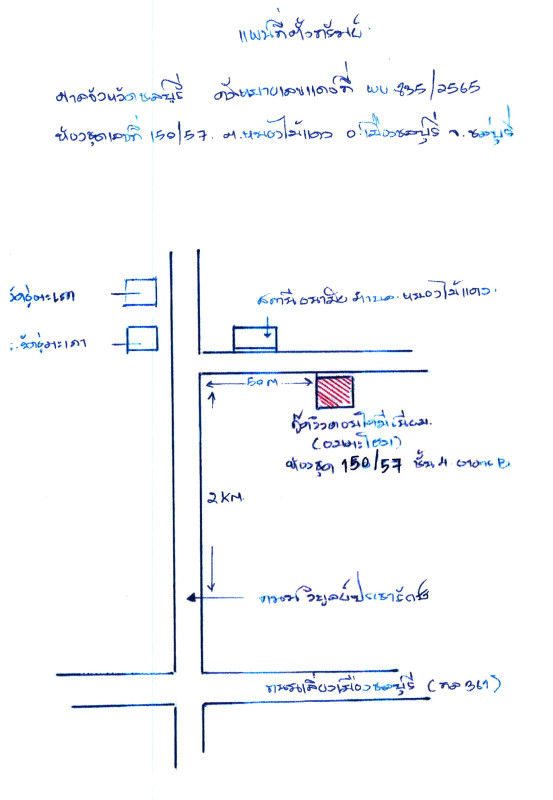 แผนที่ตั้งทรัพย์
ศาลจังหวัดชลบุรี คดีหมายเลขแดงที่ ผบ 835/2565
ห้องชุดเลขที่ 150/57 ต.หนองไม้แดง อ.เมืองชลบุรี จ.ชลบุรี
วัดอู่ตะเภา
สถานีอนามัยตำบลหนองไม้แดง
ร.ร.วัดอู่ตะเภา
50 M
(อมตะโฮม)
ห้องชุด 150/57 ชั้น 4 อาคาร B
2 KM.
ถนน วิบูลย์ประชารักษ์
ถนนเลี่ยงเมืองชลบุรี (ทล 361)